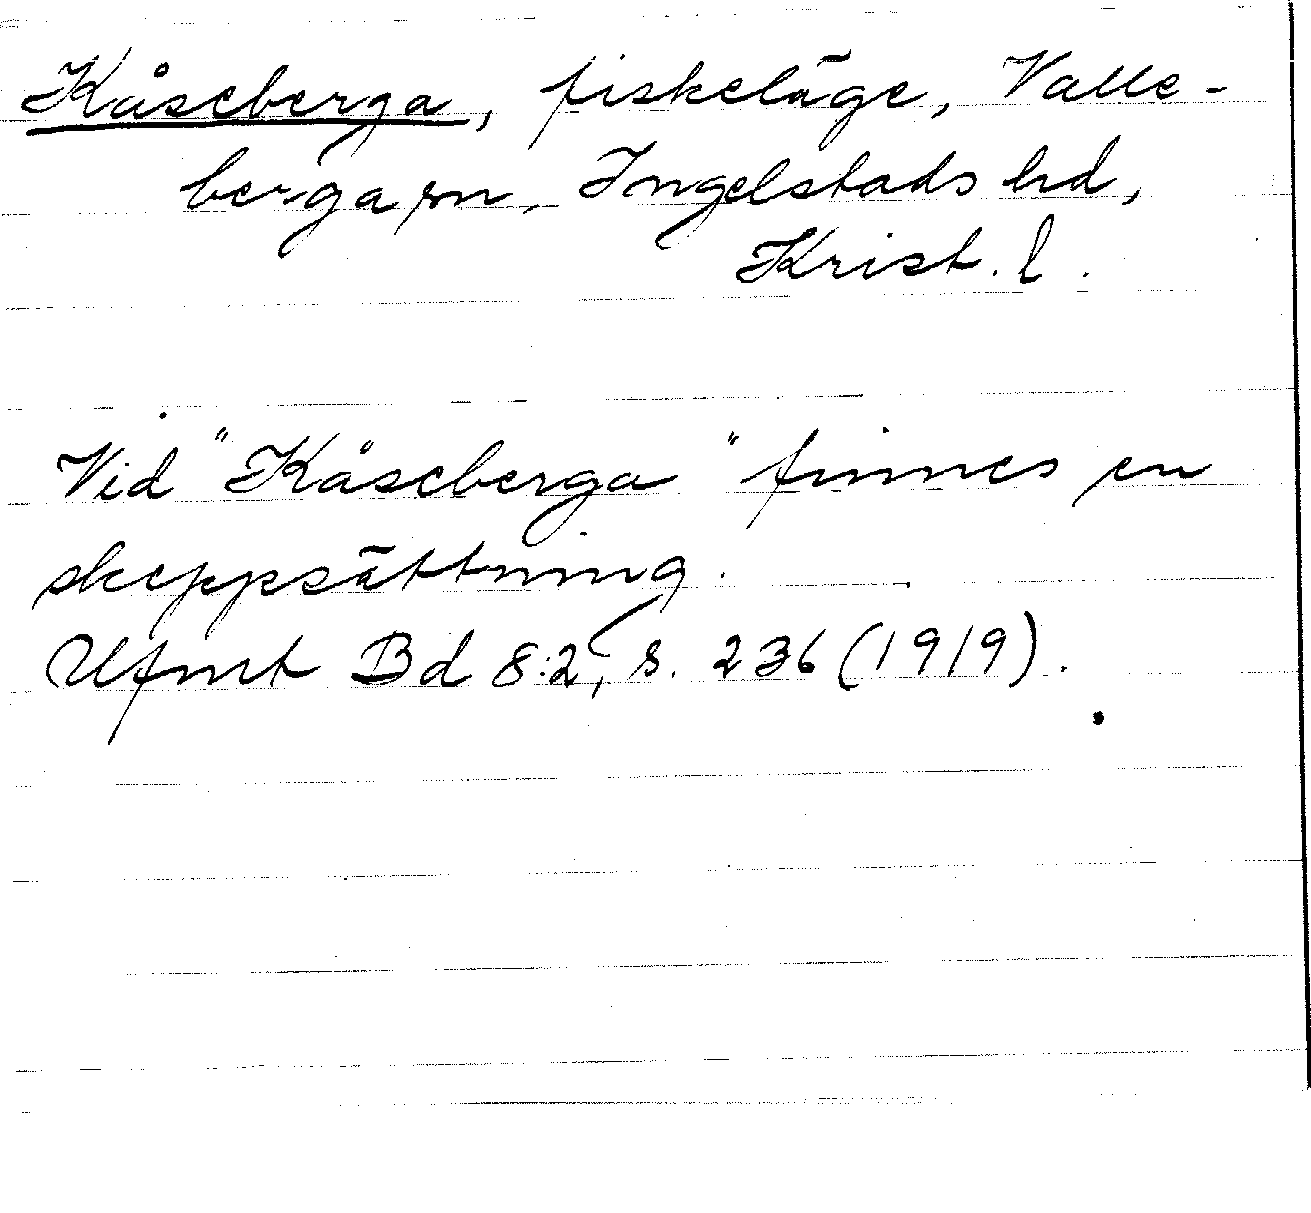 Kåseberga, fiskeläge, Valle-
berga sn, Ingelstads hd,
Krist. l.
Vid "Kåseberga" finnes en
skeppsättning.
Ufmt Bd 8:2, s. 236 (1919).